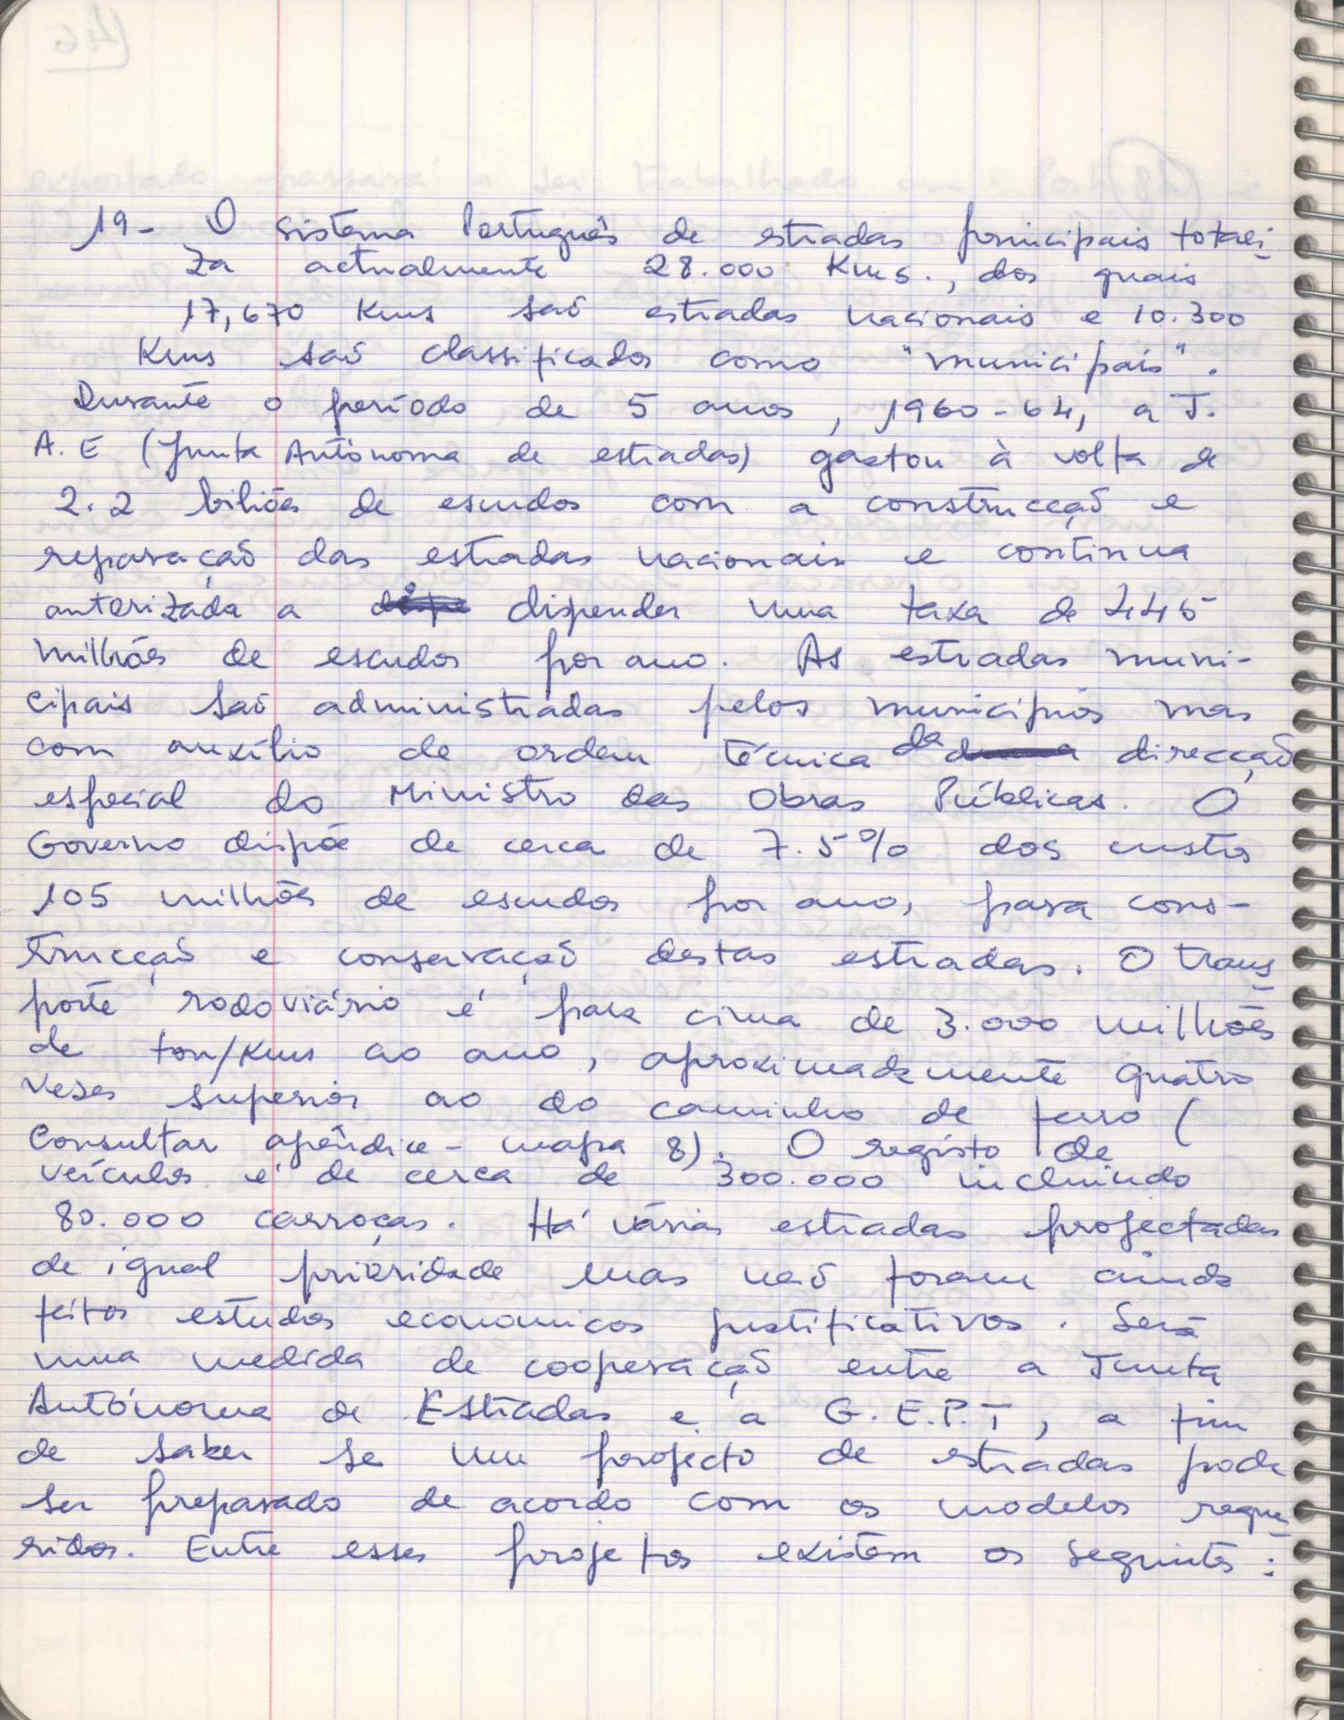 19- O sistema Português de estradas principais totali-
za actualmente 28.000 Kms., dos quais
17,670 Kms saõ estradas nacionais e 10.300
Kms saõ classificados como "municipais".
Durante o período de 5 anos, 1960-64, a J.
A.E (Junta Autónoma de estradas) gastou à volta de
2.2 biliões de escudos com a construcçaõ e
reparaçaõ das estradas nacionais e continua
autorizada a dispender uma taxa de 445
milhões de escudos por ano. As estradas muni-
cipais saõ administradas pelos municípios mas
com auxílio de ordem técnica da direcçaõ
especial do Ministro das Obras Públicas. O
Governo dispõe de cerca de 7.5% dos custos
105 milhões de escudos por ano, para cons-
trucçaõ e conservaçaõ destas estradas. O trans-
porte rodoviário é para cima de 3.000 milhões
de ton/Kms ao ano, aproximadamente quatro
vezes superior ao do caminho de ferro (
Consultar apêndice - mapa 8). O registo de
veículos é de cerca de 300.000 incluindo
80.000 carroças. Há várias estradas projectadas
de igual prioridade mas naõ foram ainda
feitos estudos economicos justificativos. Será
uma medida de cooperaçaõ entre a Junta
Autónoma de Estradas e a G.E.P.T, a fim
de saber se um projecto de estradas pode
ser preparado de acordo com os modelos reque-
ridos. Entre esses projetos existem os seguintes: